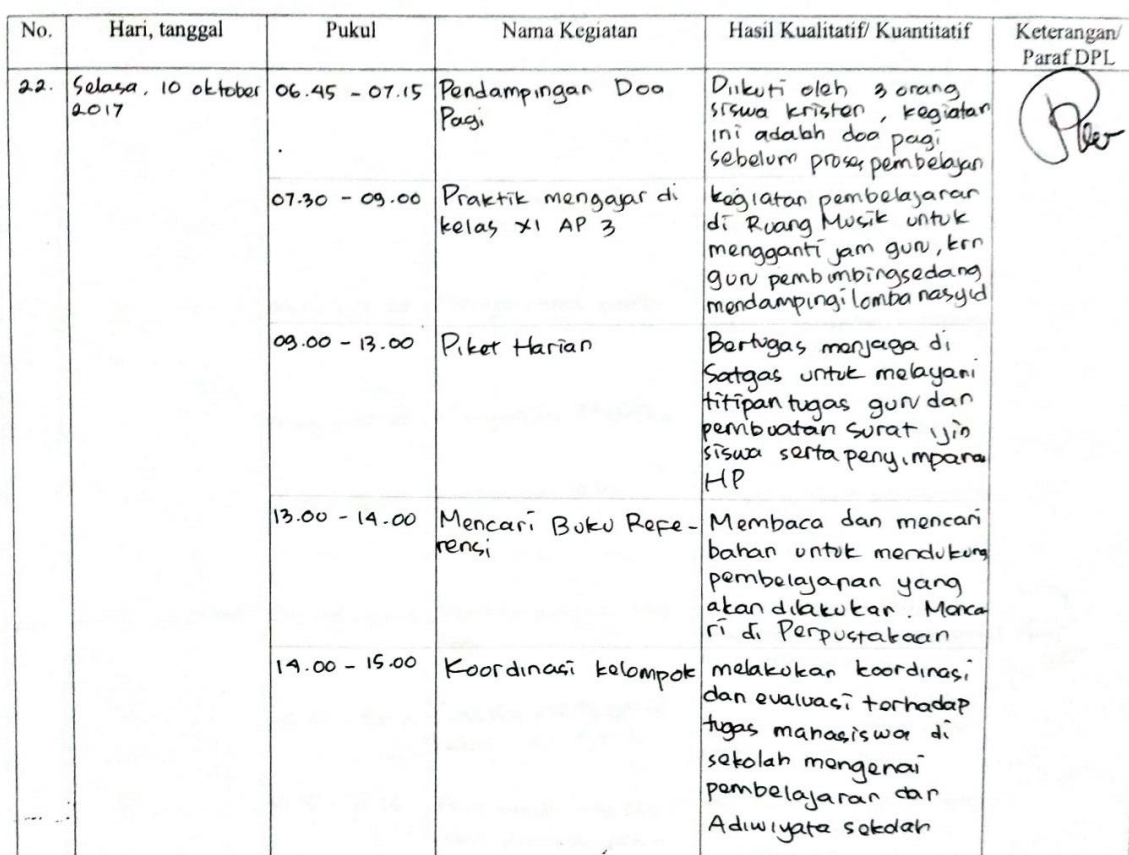 No. Hari, tanggal Pukul Nama Kegiatan Hasil Kualitatif/ Kuantitatif Keterangan/
Paraf DPL
22. Selasa, 10 oktober 06.45 - 07.15 Pendampingan Doa Diikuti oleh 3 orang
2017 Pagi siswa kristen, kegiatan
ini adalah doa pagi
sebelum proses pembelajan
07.30 - 09.00 Praktik mengajar di kegiatan pembelajaran
kelas XI AP 3 di Ruang Musik untuk
mengganti jam guru, krn
guru pembimbing sedang
mendampingi lomba nasyid
09.00 - 13.00 Piket Harian Bertugas menjaga di
Satgas untuk melayani
titipan tugas guru dan
pembuatan surat ijin
siswa serta penyimpana
HP
13.00 - 14.00 Mencari Buku Refe- Membaca dan mencari
rensi bahan untuk mendukung
pembelajaran yang
akan dilakukan. Menca
ri di Perpustakaan
14.00 - 15.00 Koordinasi kelompok melakukan koordinasi
dan evaluasi terhadap
tugas mahasiswa di
sekolah mengenai
pembelajaran dan
Adiwiyata sekolah